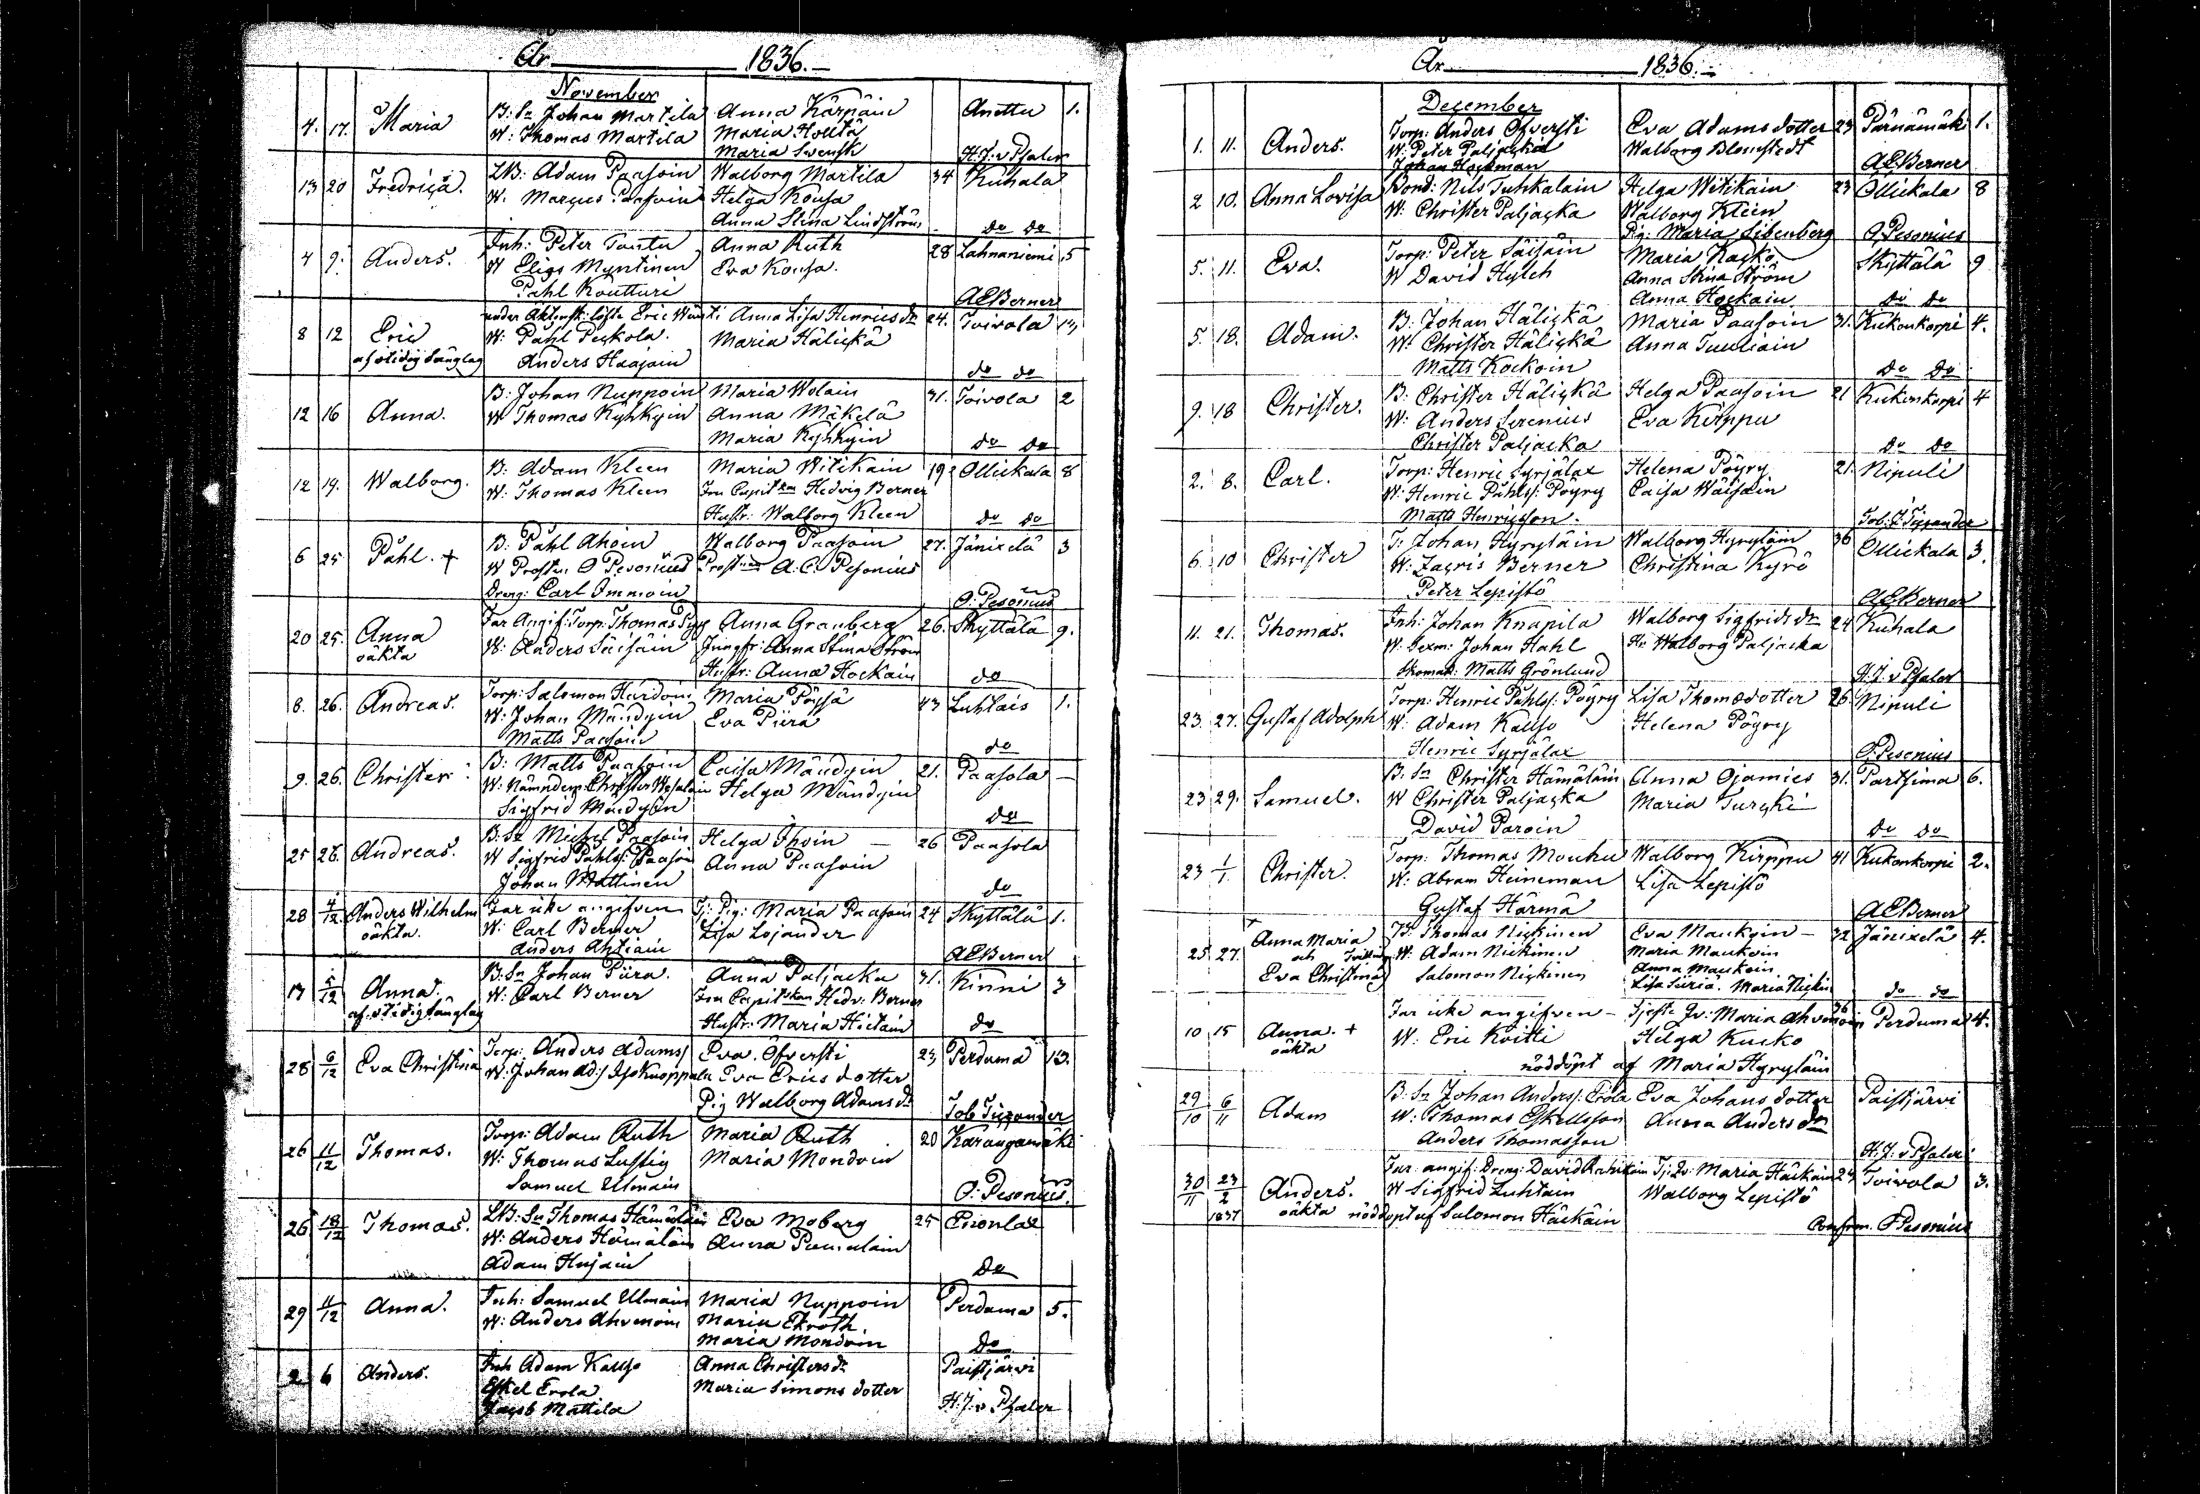 År 1836.
November
4. 17. Maria B: Sn Johan Martila Anna Kärpäin Anttu 1.
W: Thomas Martila Maria Hollta
Maria Swensk H.J. v Pfaler
13 20 Fredrica. LB: Adam Paasoin Walborg Martila 34 Kuhala
W. Marcus Paasoin Helga Kousa
Anna Stina Lindström do do
4 9. Anders. Inh: Peter Tantu Anna Ruth 28 Lahnaniemi 5
W Eligs Myntinen Eva Kousa.
Påhl Koutturi A E Berner
8 12 Eric under Äktensk: löfte Eric Anna Lisa Henrics dr 24. Toivola
W: Påhl Peskola. Maria Häliskä
af otidig Sänglag Anders Haajain do do
12 16 Anna. B: Johan Nuppoin Maria Wolain 31. Toivola 2
W Thomas Kyhkyin Anna Mäkelä
Maria Kyhkyin do do
12 19. Walborg. B: Adam Kleen Maria Witikain 19 Ollickala 8
W: Thomas Kleen Fru Capitskan Hedvig Berner
Hustr: Walborg Kleen do do
6 25 Påhl. + B: Påhl Ahoin Walborg Paasoin 27. Jänixelä 3
W Prosten O Pesonius Prostinnan A. C. Pesonius
Dreng: Carl Immoin O. Pesonius
20 25. Anna Far Angif: Torp: Thomas Anna Granberg 26. Skyttälä 9.
oäkta W: Anders Säisäin Jungfr: Anna Stina Ström
Hustr: Anna Hockain do
8. 26. Andreas. Torp: Salomon Hurdoin Maria Pöyjä 43 Luhtais 1.
W: Johan Mändyin Eva Piira
Matts Paasoin do
9. 26. Christer B: Matts Paasoin Caisa Mändyin 21. Paasola
W: Nämndem: Christer Wesalain Helga Mändyin
Sigfrid Mändyin do
25 26. Andreas. B: Sn Michel Paasoin Helga Ihoin 26 Paasola
W Sigfrid Påhls: Paasoin Anna Paasoin
Johan Mattinen do
28 4/12 Anders Wilhelm Far icke angifven Tj: Pig: Maria Paasoin 24 Skyttälä 1.
oäkta. W: Carl Berner Lisa Lojander
Anders Ahtiain A E Berner
17 5/12 Anna. B: Sn Johan Piira. Anna Paljacka 31. Kinni 3
W: Carl Berner Fru Capitskan Hedv: Berner
af otidig Sänglag Hustr: Maria Hietain do
28 6/12 Eva Christina Torp: Anders Adams Eva Öfversti 23 Perduma
W: Johan Eva Erics dotter
Pig Walborg Adams dr Job Tizander
26 11/12 Thomas. Torp: Adam Ruth Maria Ruth 20 Karangamäki
W: Thomas Lustig Maria Mondoin
Samuel Ulmain O: Pesonius
26 18/12 Thomas. LB: Sn Thomas Hämäläin Eva Moberg 25
W: Anders Hämäläin Anna Pumalain
Adam Hujain do
29 11/12 Anna. Inh: Samuel Ulmain Maria Nuppoin Perduma 5.
W: Anders Ahvenoin Maria Ekroth
Maria Mondoin do
2 6 Anders. Inh Adam Kauso Anna Christers dr Paistjärvi
Eskel Erola Maria Simons dotter
Jacob Mattila H. J. v Pfaler
År 1836.
December
1. 11. Anders. Torp: Anders Öfversti Eva Adams dotter 23 Pärnämäki 1.
W: Peter Paljacka Walborg Blomstedt
Johan Hockman A E Berner
2 10. Anna Lovisa Bond: Nils Tuhkalain Helga Witikain 23 Ollickala 8
W: Christer Paljacka Walborg Kleen
Pig: Maria Sibenberg O. Pesonius
5. 11. Eva. Torp: Peter Säisäin Maria Kaskö Skyttälä 9
W David Hylch Anna Stina Ström
Anna Hockain do do
5. 18. Adam. B: Johan Häliskä Maria Paasoin 31. Kukonkorpi 4.
W: Christer Häliskä Anna Tuuliain
Matts Kockoin do do
9. 18 Christer. B: Christer Häliskä Helga Paasoin 21 Kukonkorpi 4
W: Anders Serenius Eva Kirppu
Christer Paljacka do do
2. 8. Carl. Torp: Henric Syrjälax Helena Pöyry 21. Nipuli
W: Henric Påhls: Pöyry Caisa Wäisäin
Matts Henricsson. Job: J Tizander
6. 10 Christer T: Johan Hyryläin Walborg Hyryläin 36 Ollickala 3.
W: Zacris Berner Christina Kyrö
Peter Lepistö A E Berner
11. 21. Thomas. Inh: Johan Knapila Walborg Sigfrids dr 24 Kuhala
W: Sexm: Johan Hahl Hu: Walborg Paljacka
Skomak: Matts Grönlund H. J. v Pfaler
23. 27. Gustaf Adolph Torp: Henric Påhls: Pöyry Lisa Thomædotter 26. Nipuli
W: Adam Kauso Helena Pöyry
Henric Syrjälax O. Pesonius
23 29. Samuel. B. Sn Christer Hämäläin Anna Ojamies 31. Partsima 6.
W Christer Paljacka Maria Turski
David Paroin do do
23 1/1 Christer. Torp: Thomas Mouhu Walborg Kirppu 41 Kukonkorpi 2.
W: Abram Heineman Lisa Lepistö
Gustaf Härmä A E Berner
25. 27. Anna Maria B: Thomas Nickinen Eva Maukoin 32 Jänixelä 4.
och W: Adam Nickinen Maria Maukoin
Eva Christina Salomon Nickinen Anna Maukoin
Lisa Siiria. Maria do do
10 15 Anna. + Far icke angifven Tjenste Qv: Maria Ahvenoin 36 Perduma 4.
oäkta W: Eric Koitti Helga Kucko
nöddöpt af Maria Hyryläin
29/10 6/11 Adam B. Sn Johan Anders: Erola Eva Johans dotter Paistjärvi
W: Thomas Eskellsson Anna Anders dr
Anders Thomasson H. J. v Pfaler
30/11 23/2 Anders. Far angif: Dreng: David Tj: Qv: Maria Häckäin 24 Toivola 3.
1837 W Sigfrid Luhtain Walborg Lepistö
oäkta nöddöpt af Salomon Häckäin Confirm. O Pesonius